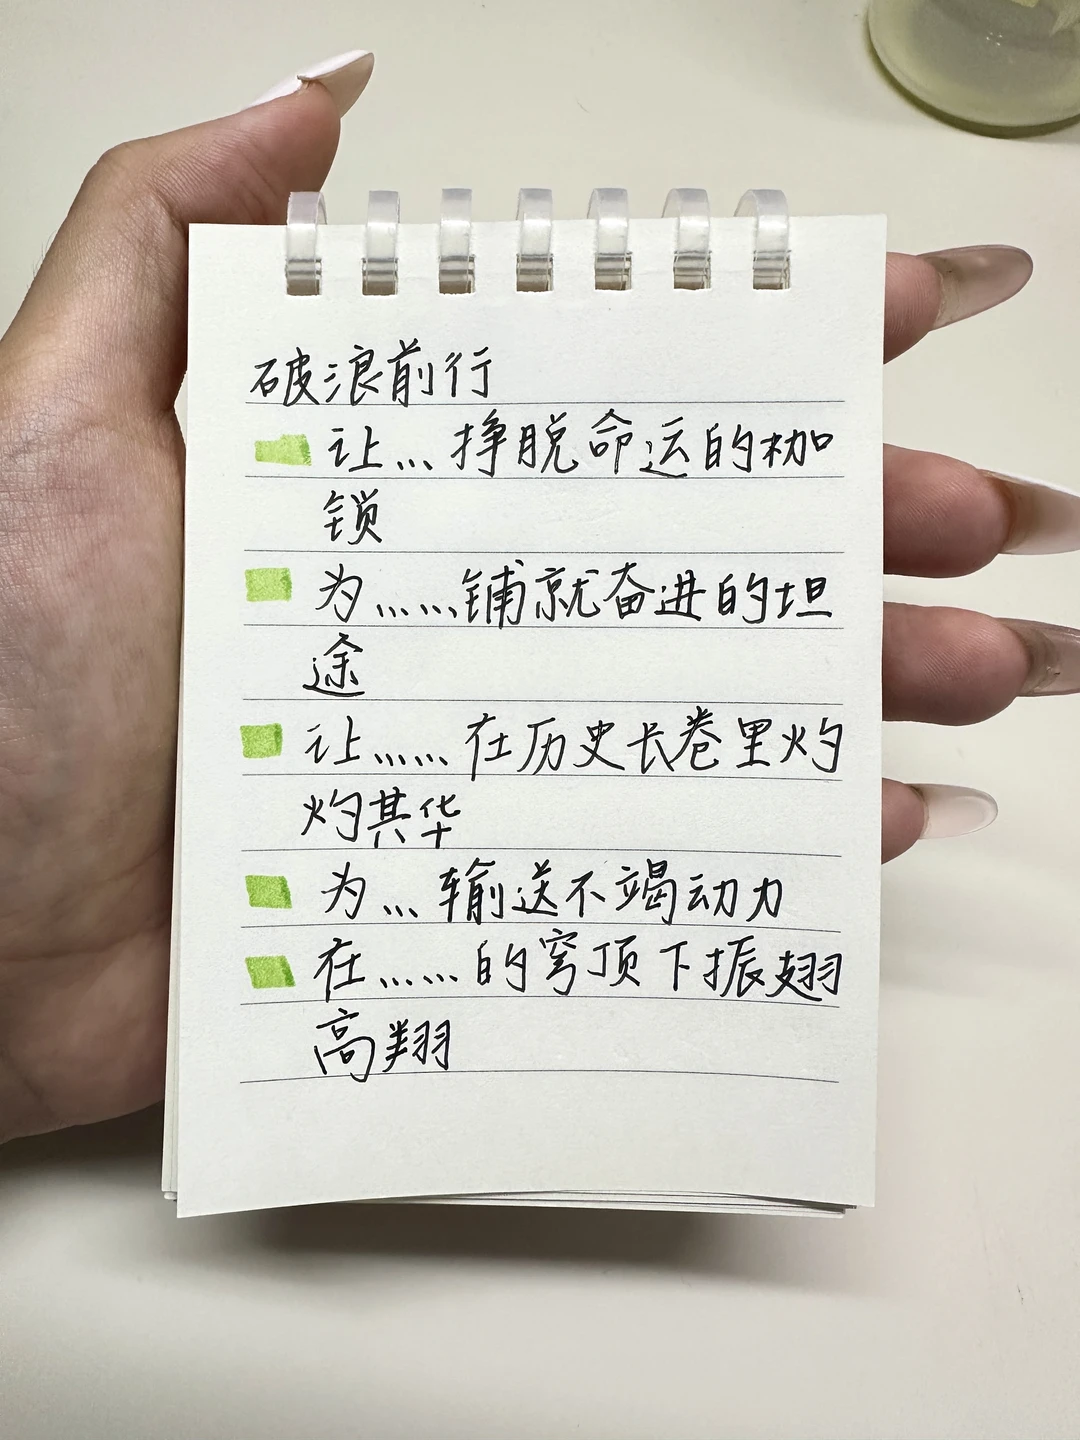 破浪前行
让...挣脱命运的枷
锁
为......铺就奋进的坦
途
让......在历史长卷里灼
灼其华
为...输送不竭动力
在......的穹顶下振翅
高翔